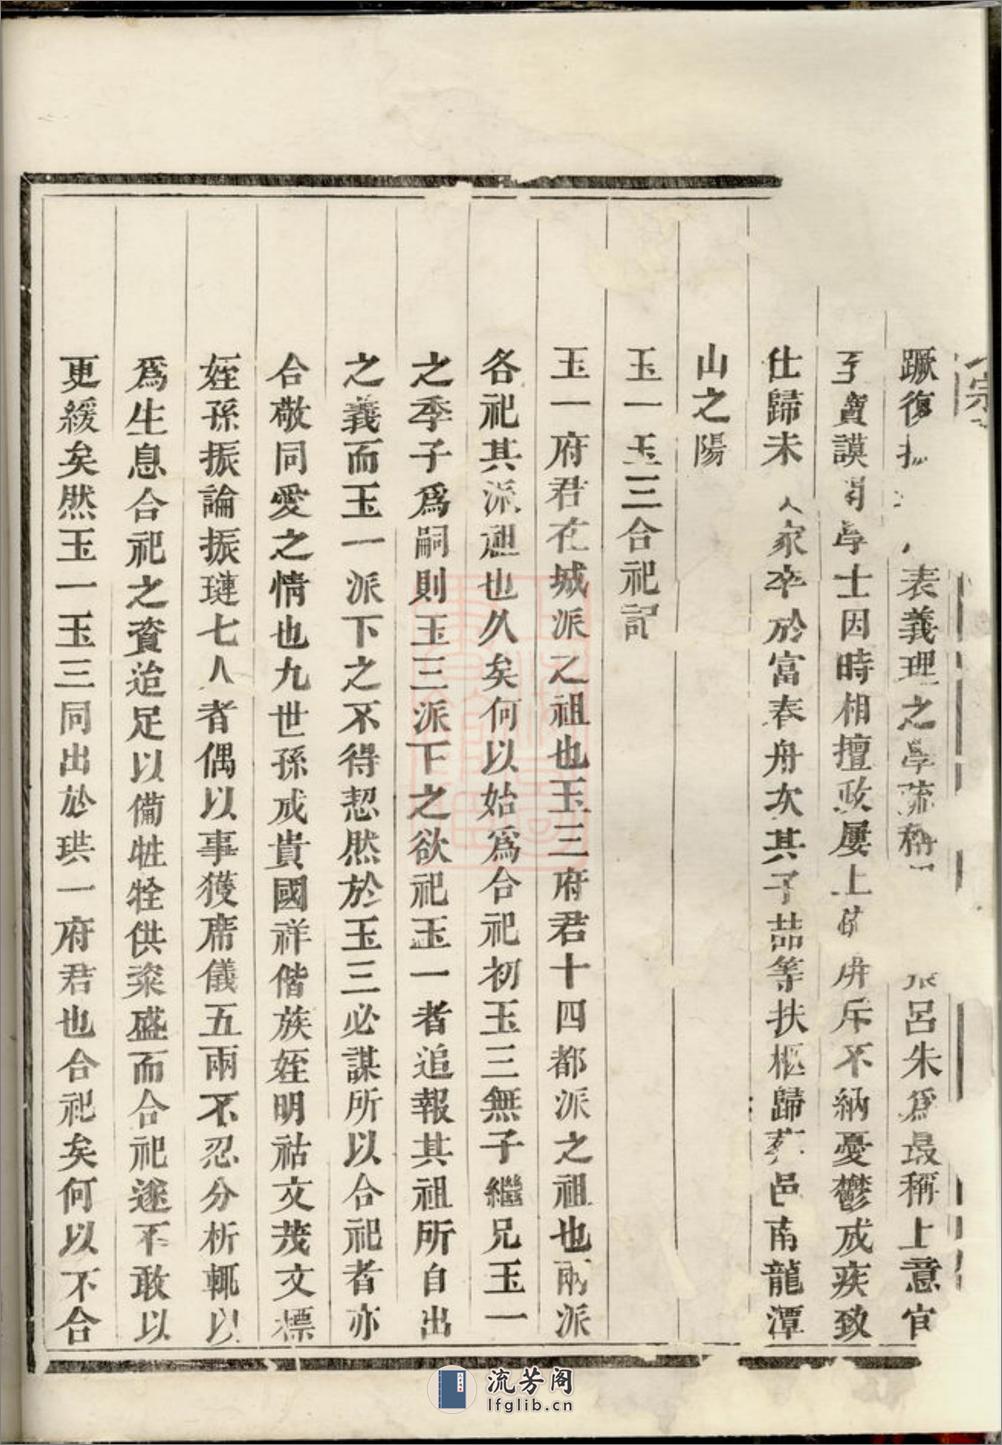 宗
蹶復 表義理之學疏稱 呂朱爲最稱上意官
至寶謨閣學士因時相擅政屢上 斥不納憂鬱成疾致
仕歸未 家卒於富春舟次其子喆等扶柩歸葬邑南龍潭
山之陽
玉一玉三合祀記
玉一府君在城派之祖也玉三府君十四都派之祖也兩派
各祀其派祖也久矣何以始爲合祀初玉三無子繼兄玉一
之季子爲嗣則玉三派下之欲祀玉一者追報其祖所自出
之義而玉一派下之不得恝然於玉三必謀所以合祀者亦
合敬同愛之情也九世孫戒貴國祥偕族姪明祜文茂文標
姪孫振論振璉七人者偶以事獲席儀五兩不忍分析輒以
爲生息合祀之資迨足以備牲牷供粢盛而合祀遂不敢以
更緩矣然玉一玉三同出於珙一府君也合祀矣何以不合
流芳阁
lfglib.cn